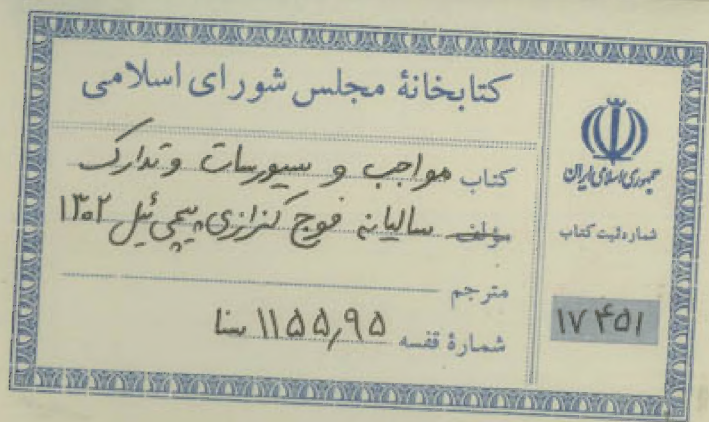 کتابخانهٔ مجلس شورای اسلامی
کتاب مواجب و سیورسات و تدارک
مؤلف سالیانه فوج کزازی پیچی ئیل ۱۳۰۲
مترجم
شمارهٔ قفسه ۱۱۵۵٫۹۵ سنا
جمهوری اسلامی ایران
شماره ثبت کتاب
۱۷۴۵۱